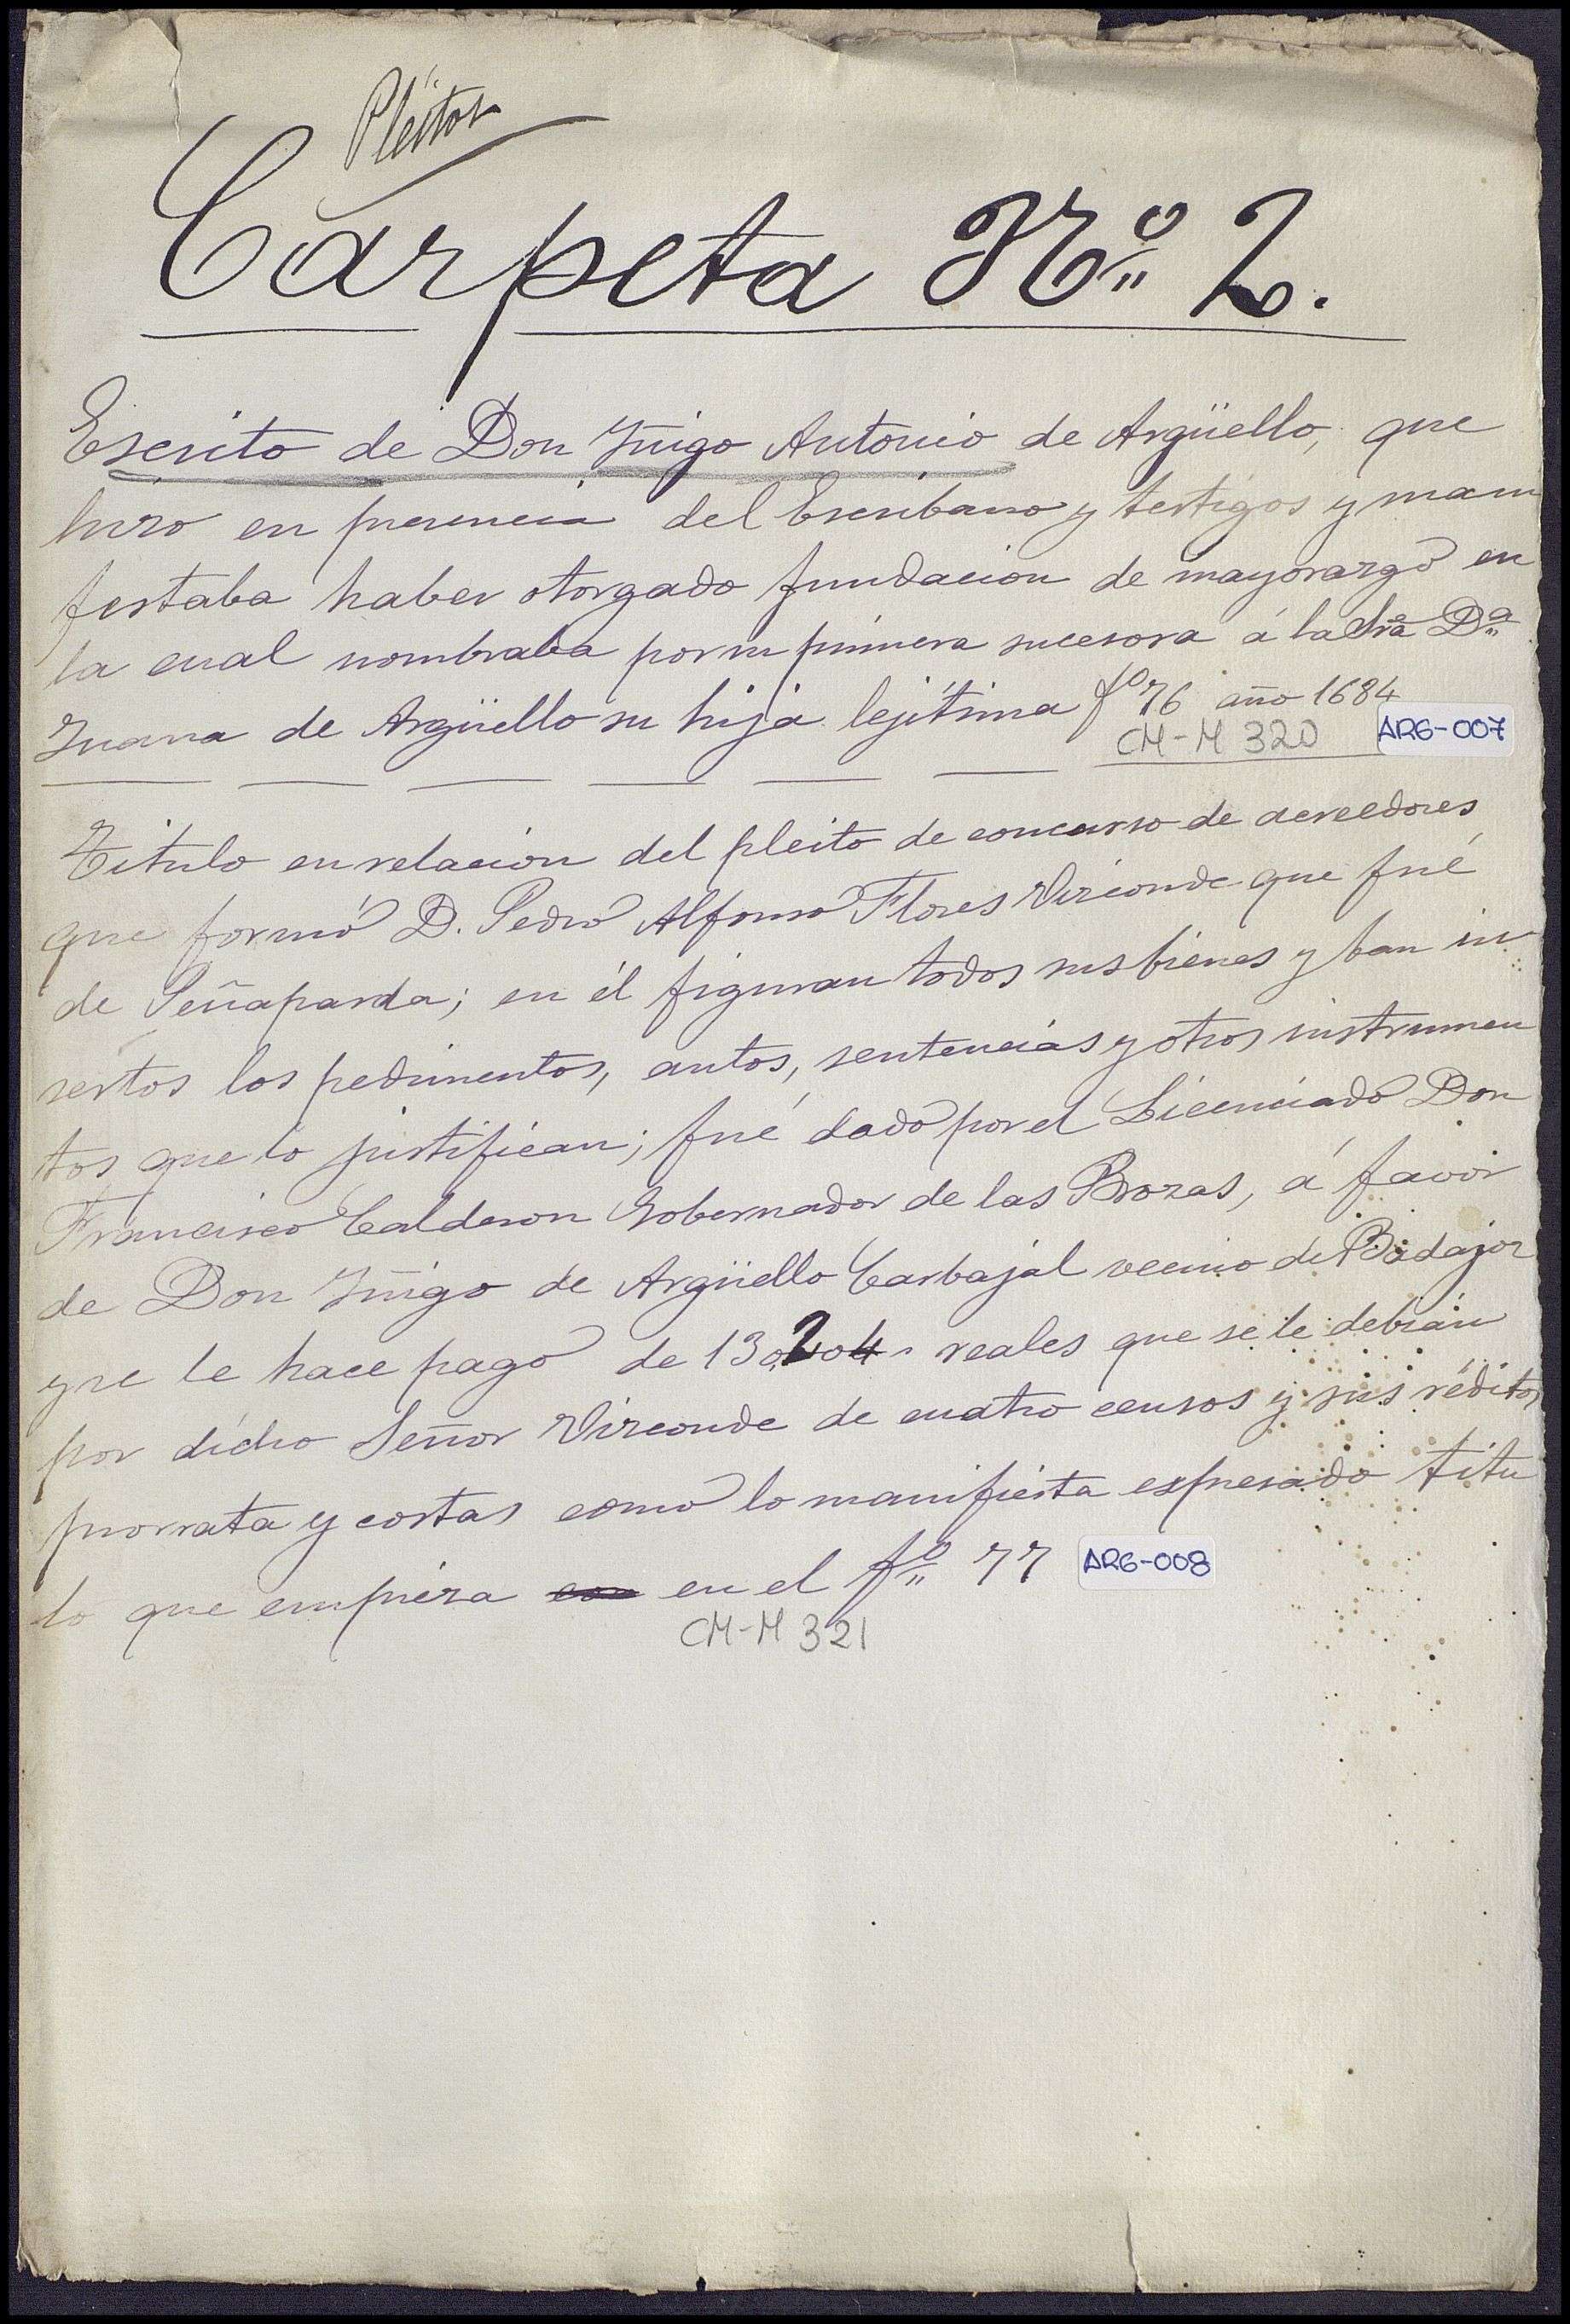 Pleitos
Carpeta Nº 2.
Escrito de Don Iñigo Antonio de Argüello, que
hizo en presencia del Escribano y testigos y mani
festaba haber otorgado fundacion de mayorazgo en
la cual nombraba por su primera sucesora á la Sra Dª
Juana de Argüello su hija lejítima fº 76 año 1684
CM-M 320 ARG-007
Título en relacion del pleito de concurso de acreedores
que formó D. Pedro Alfonso Flores Vizconde que fué
de Peñaparda; en él figuran todos sus bienes y ban in
sertos los pedimentos, autos, sentencias y otros instrumen
tos que lo justifican; fué dado por el Licenciado Don
Francisco Calderon Gobernador de las Brozas, á favor
de Don Iñigo de Argüello Carbajal vecino de Badajoz
y se le hace pago de reales que se le debian
por dicho Señor Vizconde de cuatro censos y sus réditos
prorrata y costas como lo manifiesta expresado títu
lo que empieza en el fº 77 ARG-008
CM-M 321